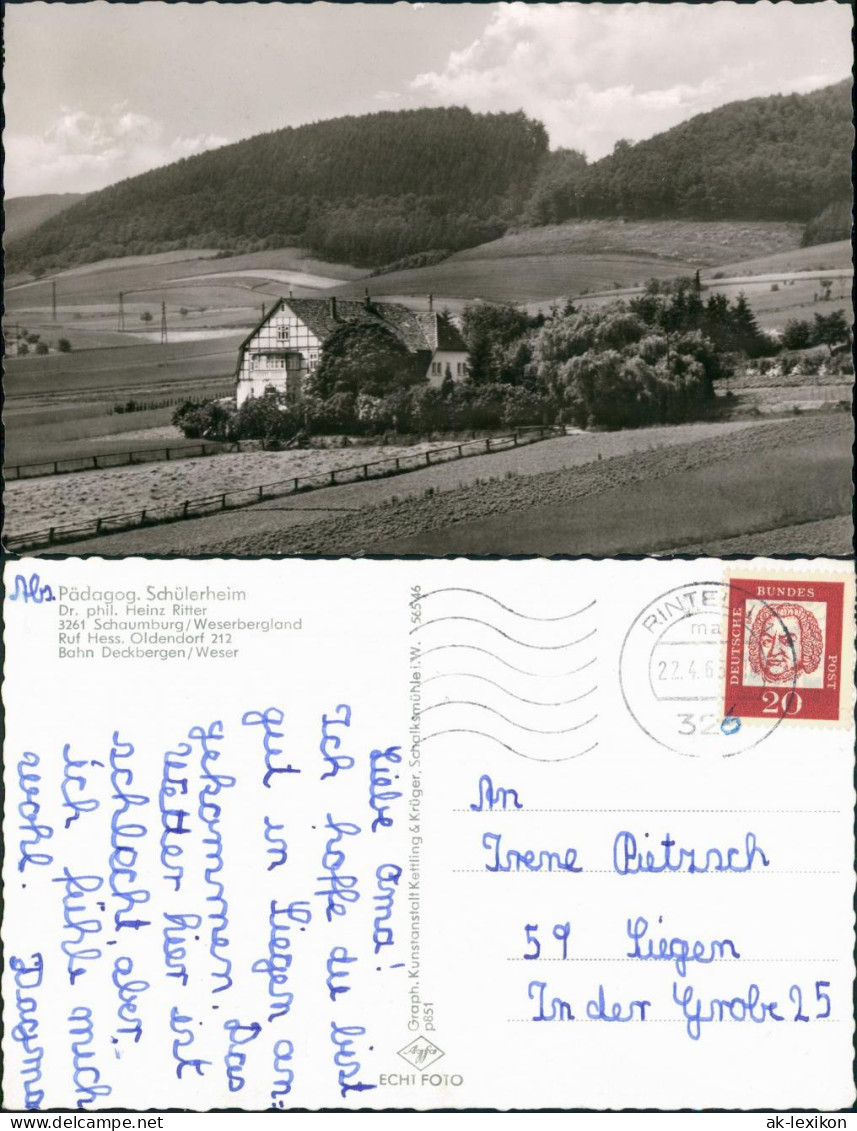 Abs. Pädagog. Schülerheim
Dr. phil. Heinz Ritter
3261 Schaumburg/Weserbergland
Ruf Hess. Oldendorf 212
Bahn Deckbergen/Weser
Liebe Oma!
Ich hoffe du bist
gut in Siegen an=
gekommen. Das
Wetter hier ist
schlecht, aber
ich fühle mich
wohl. Dagmar
Graph. Kunstanstalt Kettling & Krüger, Schalksmühle i. W. 56546
p851
Agfa
ECHT FOTO
22.4.63
326
DEUTSCHE BUNDES POST
20
An
Irene Pietzsch
59 Siegen
In der Grobe 25
delcampe.net
ak-lexikon